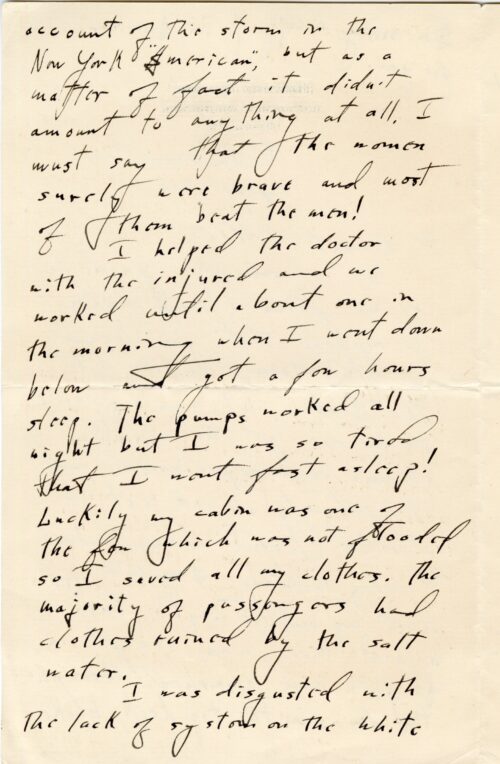 account of the storm in the
New York "American", but as a
matter of fact it didn't
amount to anything at all. I
must say that the women
surely were brave and most
of them beat the men!
I helped the doctor
with the injured and we
worked until about one in
the morning when I went down
below and got a few hours
sleep. The pumps worked all
night but I was so tired
that I went fast asleep!
Luckily my cabin was one of
the few which was not flooded
so I saved all my clothes. The
majority of passengers had
clothes ruined by the salt
water.
I was disgusted with
the lack of system on the White